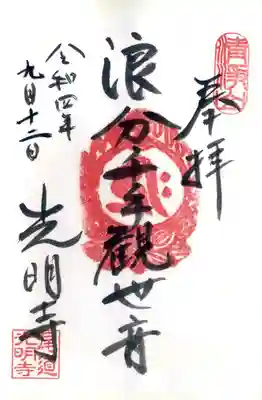 奉拝
浪分千手觀世音
令和四年
九月十二日
光明寺
光明寺